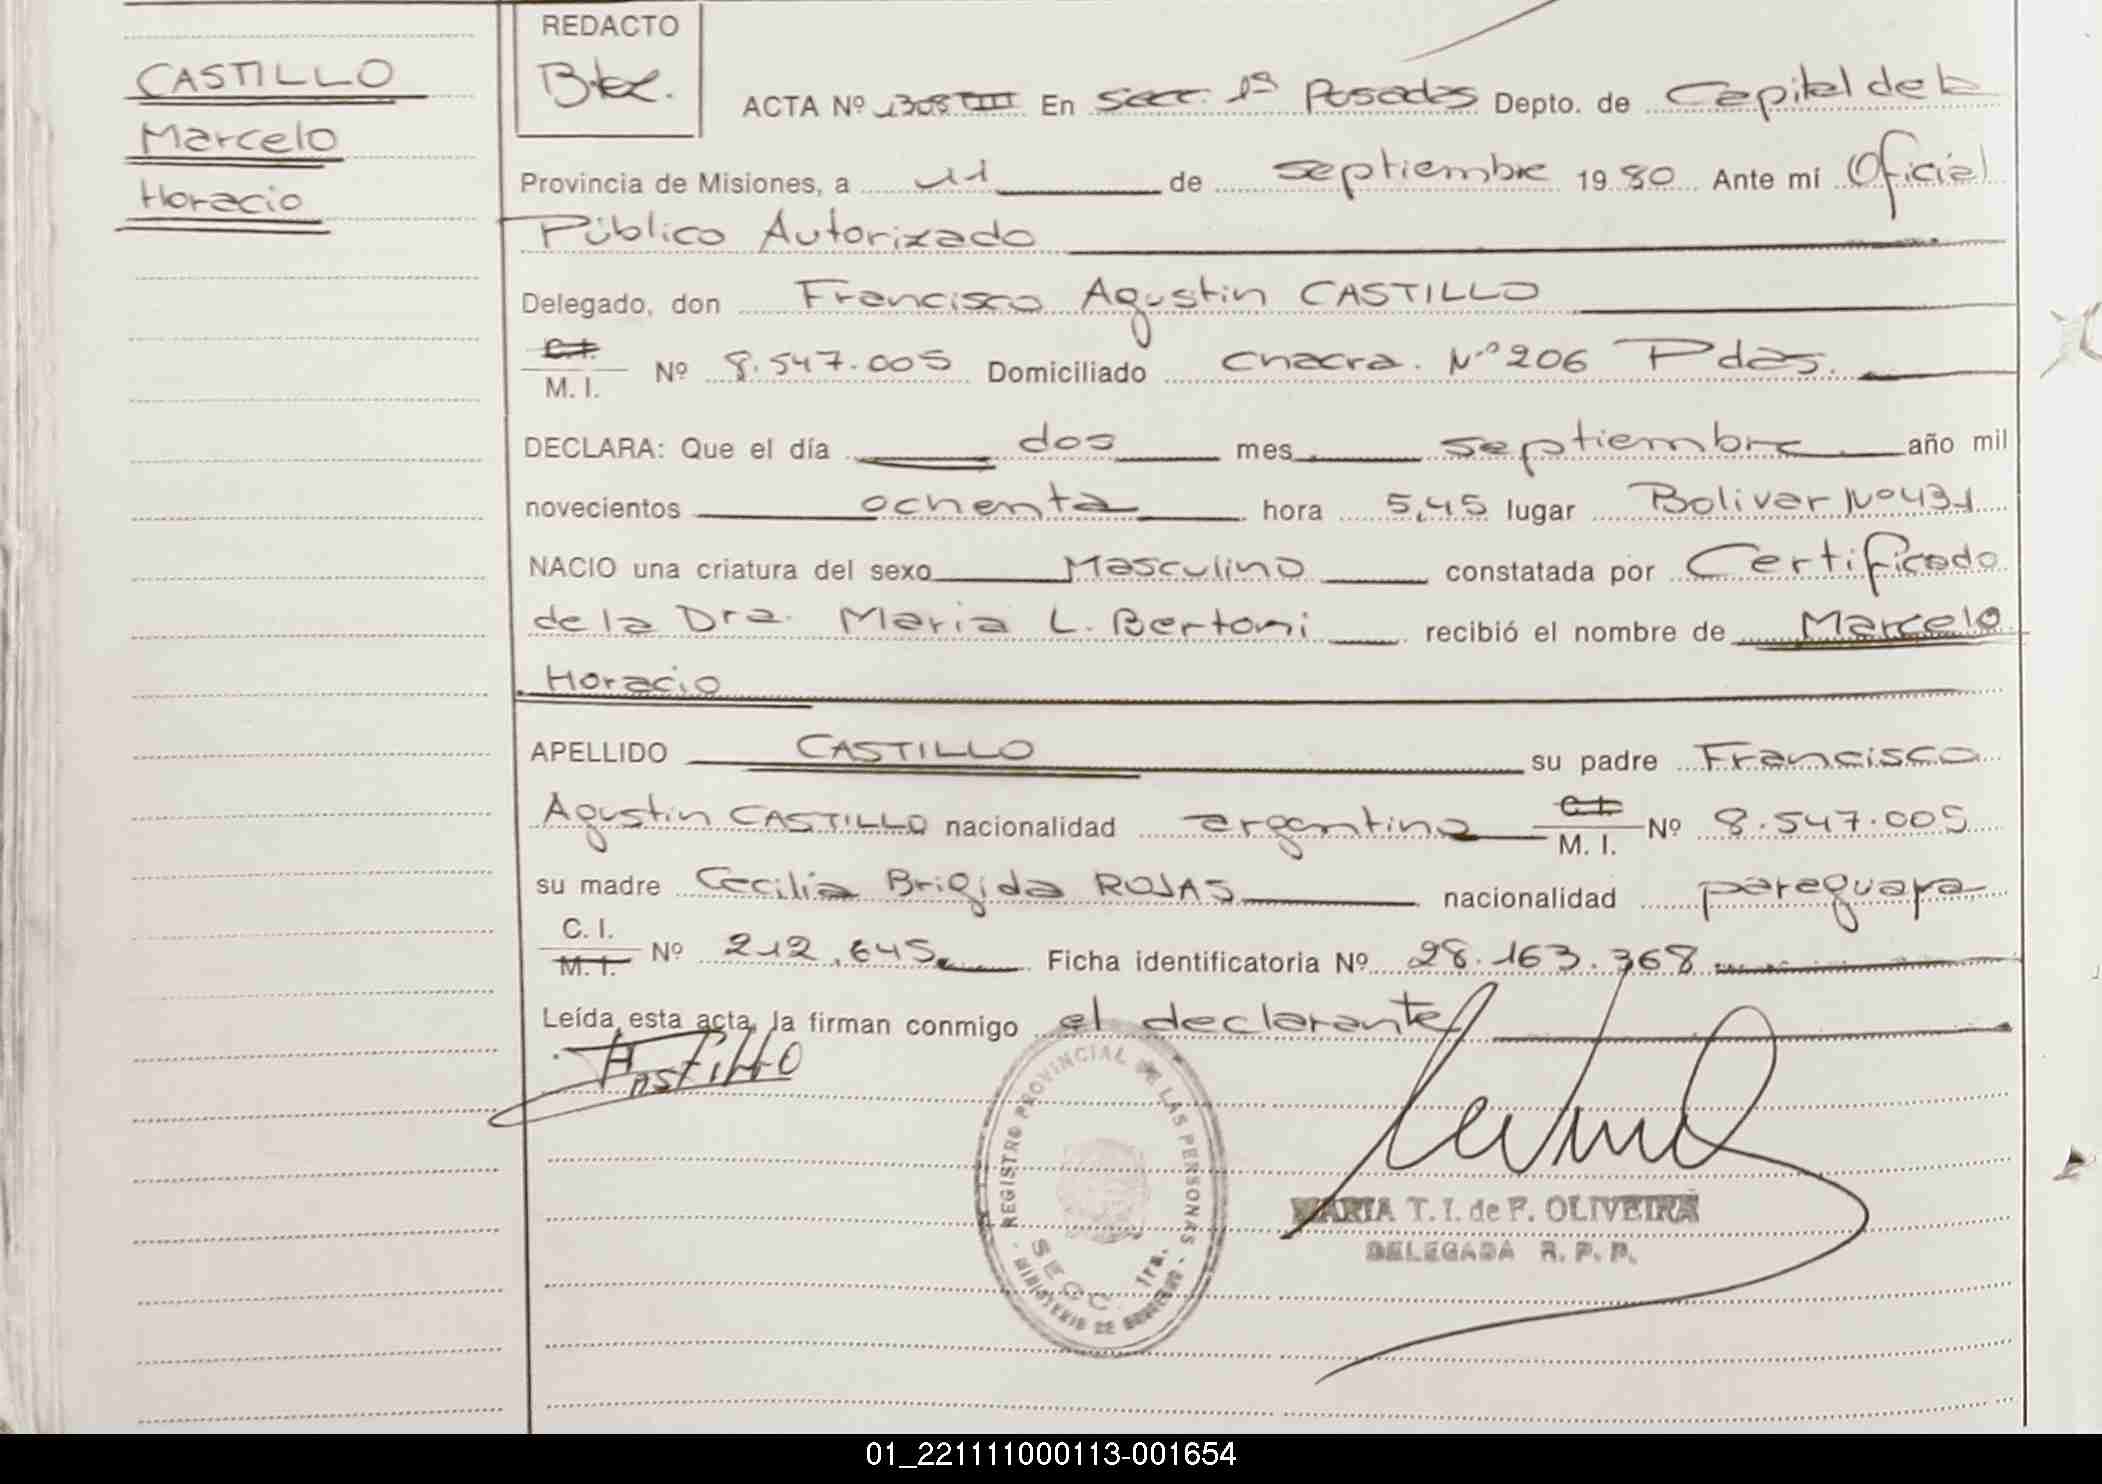 CASTILLO
Marcelo
Horacio
REDACTO
ACTA Nº 1308 III En Secc. 1ª Posadas Depto. de Capital de la
Provincia de Misiones, a 11 de septiembre 1980 Ante mí Oficial
Público Autorizado
Delegado, don Francisco Agustin CASTILLO
C.I.
M. I. Nº 8.547.005 Domiciliado Chacra. Nº 206 Pdas.
DECLARA: Que el día dos mes septiembre año mil
novecientos ochenta hora 5,45 lugar Bolivar Nº 431
NACIO una criatura del sexo Masculino constatada por Certificado
de la Dra. Maria L. Bertoni recibió el nombre de Marcelo
Horacio
APELLIDO CASTILLO su padre Francisco
Agustin CASTILLO nacionalidad argentina C.I. M. I. Nº 8.547.005
su madre Cecilia Brigida ROJAS nacionalidad paraguaya
C. I.
M. I. Nº 212.645 Ficha identificatoria Nº 28.163.368
Leída esta acta, la firman conmigo el declarante
Castillo
REGISTRO PROVINCIAL DE LAS PERSONAS
SECC. 1ra.
MINISTERIO DE GOBIERNO
MARIA T. I. de F. OLIVEIRA
DELEGADA R. P. P.
01_221111000113-001654